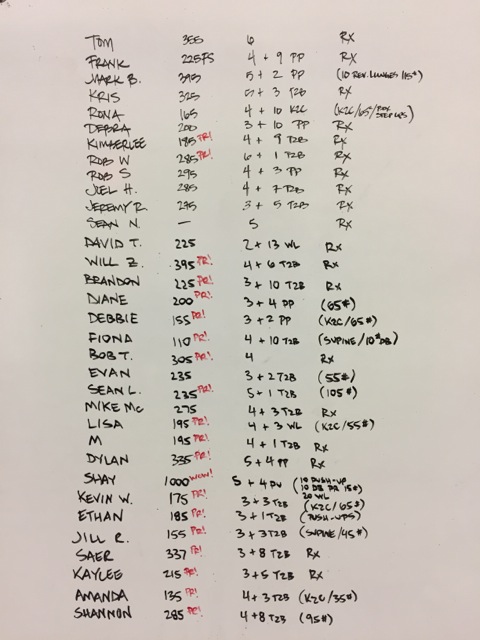 TOM 355 6 RX
FRANK 225FS 4 + 9 PP RX
MARK B. 395 5 + 2 PP (10 REV. LUNGES 115#)
KRIS 325 5 + 3 T2B RX
RONA 165 4 + 10 K2C (K2C/65/BOX STEP UPS)
DEBRA 200 3 + 10 PP RX
KIMBERLEE 185 PR! 4 + 9 T2B RX
ROB W 285 PR! 6 + 1 T2B RX
ROB S 295 4 + 3 PP RX
JOEL H. 285 4 + 7 T2B RX
JEREMY R. 295 3 + 5 T2B RX
SEAN N. — 5 RX
DAVID T. 225 2 + 13 WL RX
WILL Z. 395 PR! 4 + 6 T2B RX
BRANDON 225 PR! 3 + 10 T2B RX
DIANE 200 PR! 3 + 4 PP (65#)
DEBBIE 155 PR! 3 + 2 PP (K2C/65#)
FIONA 110 PR! 4 + 10 T2B (SUPINE/10#DB)
BOB T. 305 PR! 4 RX
EVAN 235 3 + 2 T2B (55#)
SEAN L. 235 PR! 5 + 1 T2B (105#)
MIKE Mc 275 4 + 3 T2B RX
LISA 195 PR! 4 + 3 WL (K2C/55#)
M 195 PR! 4 + 1 T2B RX
DYLAN 335 PR! 5 + 4 PP RX
SHAY 1000 WOW! 5 + 4 PU (10 PUSH-UP
10 DB PR 15#)
20 WL
KEVIN W. 175 PR! 3 + 3 T2B (K2C/65#)
ETHAN 185 PR! 3 + 1 T2B (PUSH-UPS)
JILL R. 155 PR! 3 + 3 T2B (SUPINE/45#)
SAER 337 PR! 3 + 8 T2B RX
KAYLEE 215 PR! 3 + 5 T2B RX
AMANDA 135 PR! 4 + 3 T2B (K2C/35#)
SHANNON 285 PR! 4 + 8 T2B (95#)